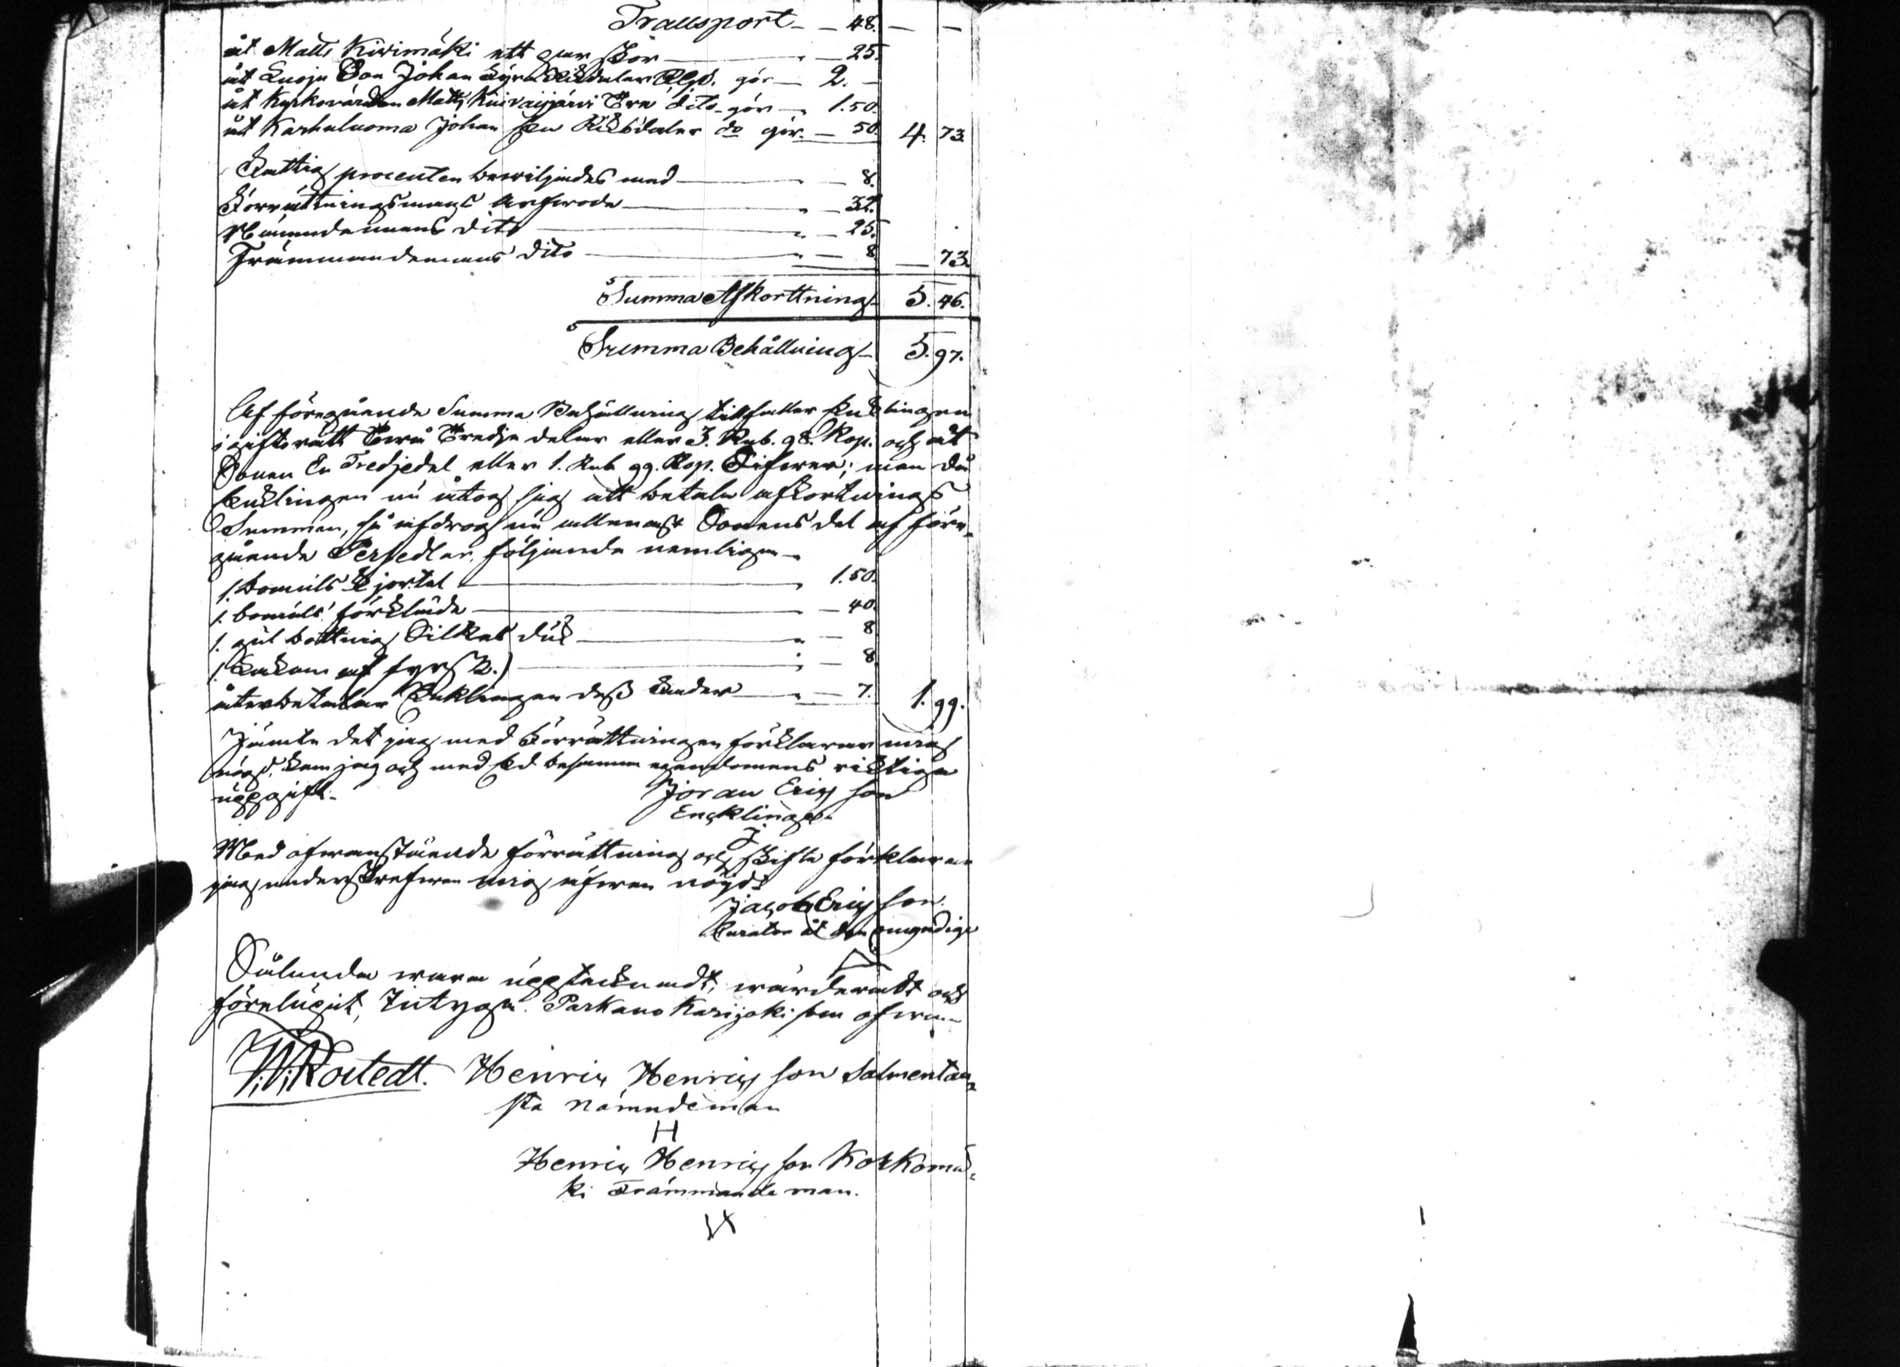 Transport — 48. — —
åt Matts Kivimäki ett par skor — 25.
åt Johan Fyra Riksdaler Rgs. gör — 2. —
åt Kyrkovärden Matts Kuivaisjärvi Tre dito gör — 1.50.
åt Karhaluoma Johan En Riksdaler do gör — 50. 4. 73.
Fattig procenten beviljades med — 8.
Förrättningsmans Arfwode — 32.
Nämndemans dito — 25.
Främmandemans dito — 8. — 73.
Summa Afkorttning 5. 46.
Summa Behållning 5. 97.
Af föregående Summa Behållning tillfaller Enklingen
i giftorätt Twå Tredje delar eller 3. Rub. 98. Kop. och åt
Sonen En Tredjedel eller 1. Rub. 99. Kop. Silfwer; men då
Enklingen nu åtog sig att betala afkortnings
Summan, så afdrogs nu allenast Sonens del af före-
gående Persedlar, följande nemligen
1. Bomuls Kjortel — 1.50.
1. bomuls förkläde — 40.
1. gul bottnig Silkes duk — 8.
1. af — 8.
återbetalar Enklingen dess — 7. 1. 99.
Jämte det jag med Förrättningen förklarar mig
nögd, kan jag och med Ed besanna egendomens riktiga
uppgift.
Jöran Erics son
Encklingen
Med ofwanstående förrättning och skifte förklarar
jag underskrefwen mig äfwen nögd.
Jacob Erics son
Curator åt den omyndige
Sålunda wara upptecknadt, wärderadt och
förelupit, Intyga. Parkano Karijoki som ofwan
Rostedt. Henric Henrics son Salmentau-
sta Nämndeman
H
Henric Henrics son Kotkomä-
ki Främmande man.